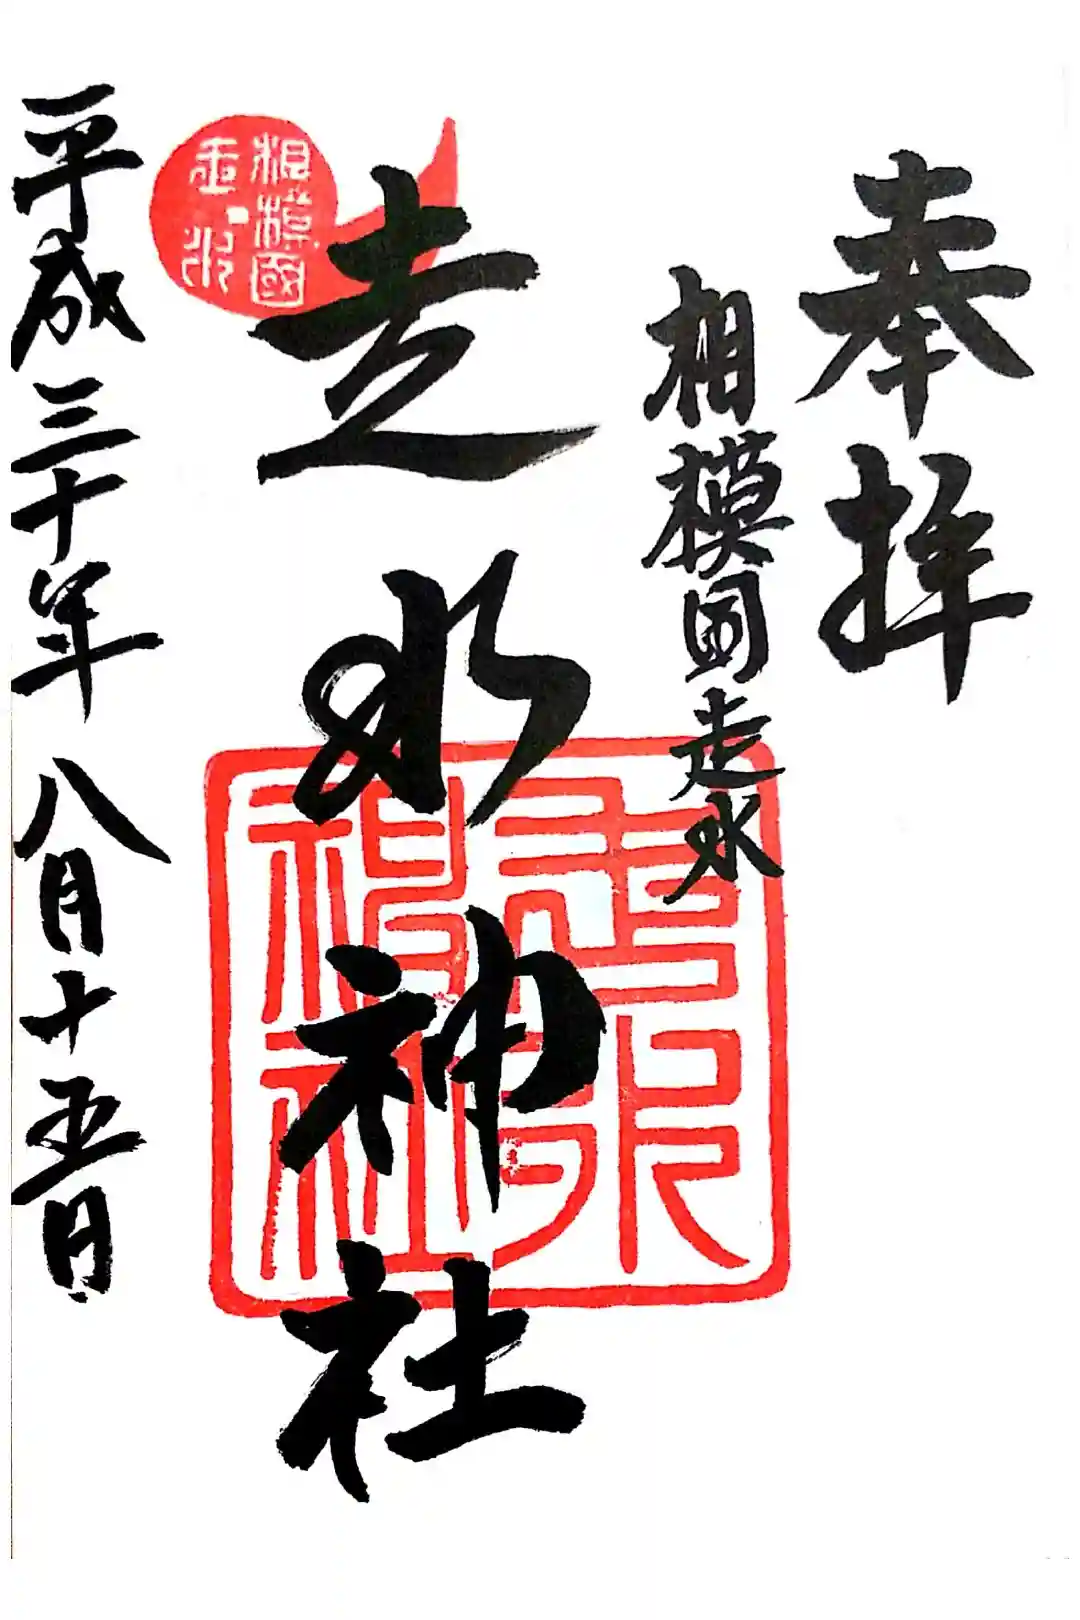 奉拝
相模国走水
走水神社
相模國
走水
走水神社
平成三十年八月十五日